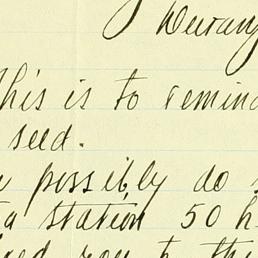 his is to remind
seed.
possibly do
a station 50 h
you to the